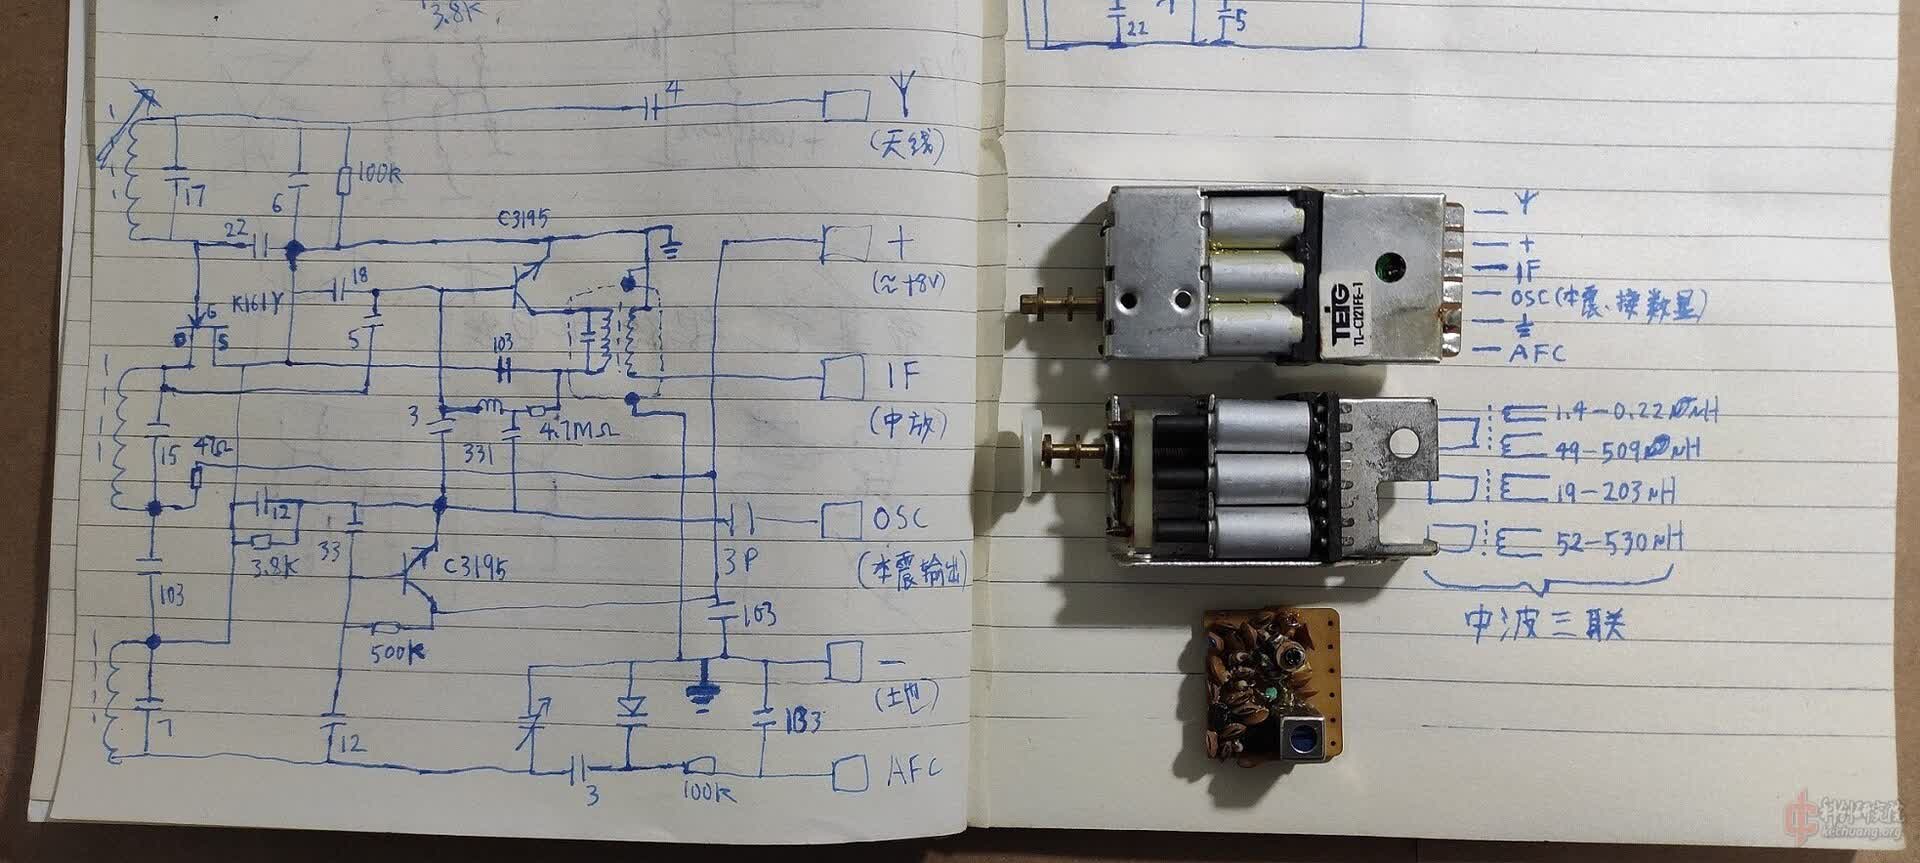 3.8K
22
5
4
(天线)
17
6
100K
22
C3195
+
(≈+8V)
K161Y
18
G
D
S
5
103
IF
(中放)
3
4.7MΩ
331
15
47Ω
12
3.8K
33
C3195
OSC
(本震输出)
3P
103
103
500K
−
(土也)
7
12
3
100K
AFC
+
IF
OSC(本震、接数显)
AFC
TEIG
TL-C121FE-1
1.4-0.22μH
49-509μH
19-203μH
52-530μH
中波三联
科创研究院
kechuang.org